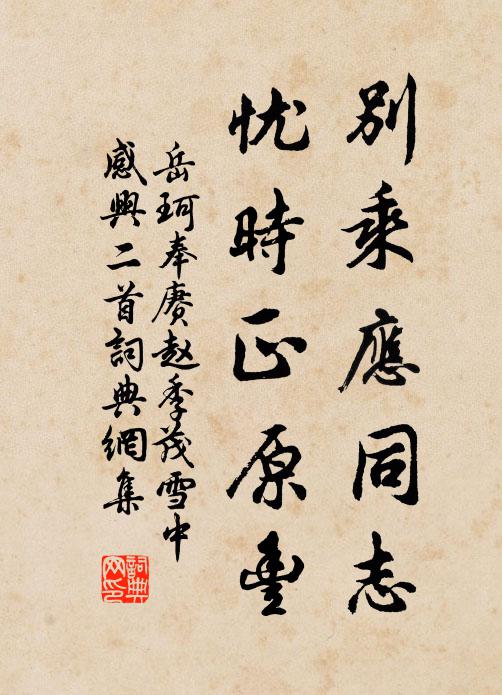 別乘應同志
忧時正原豐
岳珂奉赓赵季茂雪中
感興二首詞典網集
詞典网印